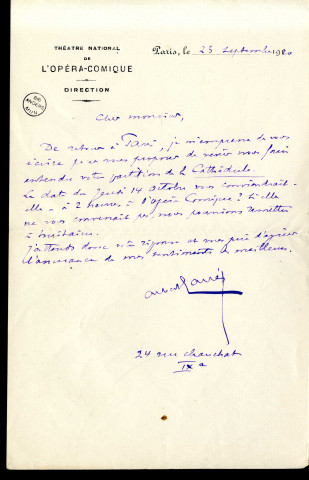 THÉÂTRE NATIONAL
DE
L'OPÉRA-COMIQUE
DIRECTION
Paris, le 23 Septembre 1920
BIB
ANGERS
Cher monsieur,
De retour à Paris, je m'empresse de vous
écrire pour vous proposer de venir nous faire
entendre votre partition de la Cathédrale.
La date du Jeudi 14 octobre vous conviendrait-
elle - à 2 heures à l'Opéra Comique? Si elle
ne vous convenait pas nous pourrions
J'attends donc votre réponse et vous prie d'agréer
l'assurance de mes sentiments les meilleurs.
Albert Carré
24 rue Chauchat
IXe